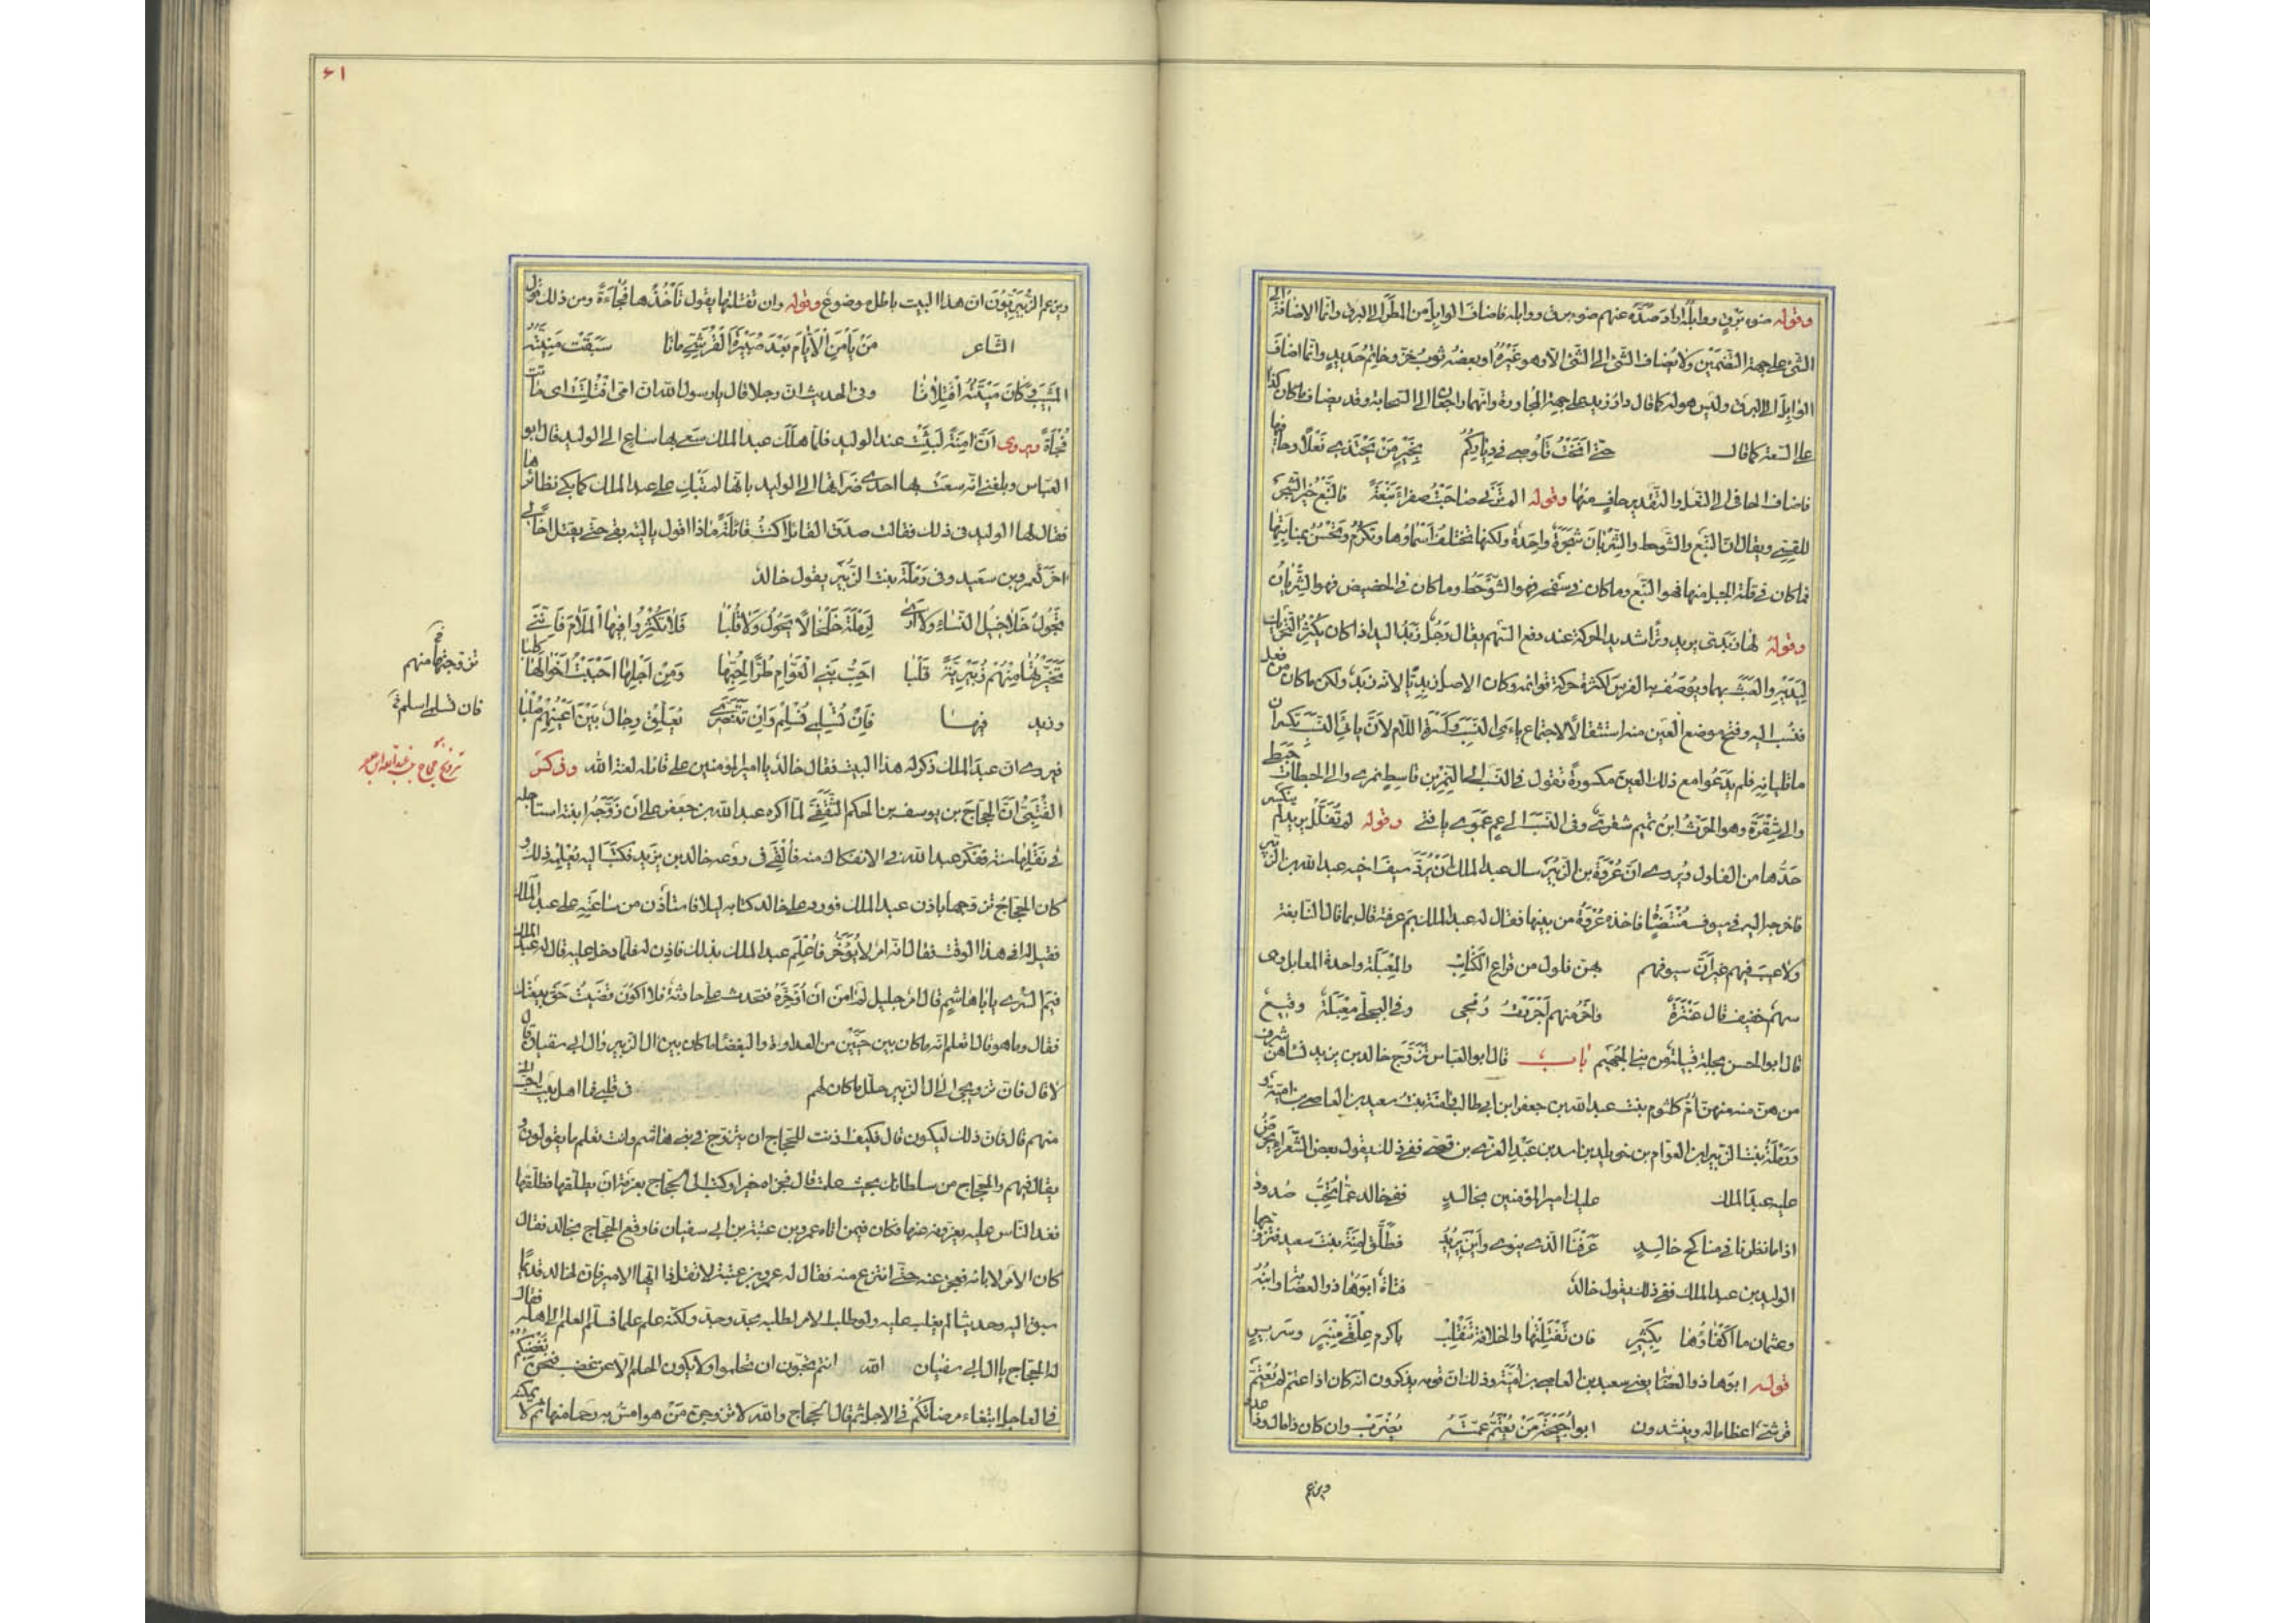 وقوله ضوء برق ووابله اراد صده عنهم ضوء برق ووابله فاضاف الوابل من المطر الى البرق وانما الاضافة الى
الشئ على جهة التضمين ولا يضاف الشئ الى الشئ الا وهو غيره او بعضه ثوب خز وخاتم حديد وانما اضاف
الوابل الى البرق وليس هو له كما قال دار زيد على جهة المجاورة وانهما راجعان الى السحابة وقد يضاف ما كان كذا
على السعة كما قال حتى انخت قلوصى فى دياركم بخير من يحتذى نعلا وحافيها
فاضاف الحافى الى النعل والتقدير حاف منها وقوله الم ترنى صاحبت صفراء نبعة فالنبع خير الشجر
للقسى ويقال ان النبع والشوحط والشريان شجرة واحدة ولكنها تختلف اسماؤها وتكرم وتحسن بمنابتها
فما كان فى قلة الجبل منها فهو النبع وما كان فى سفحه فهو الشوحط وما كان فى الحضيض فهو الشريان
وقوله لها ربذى يريد وترا شديد الحركة عند دفع السهم يقال رجل ربذ اليد اذا كان يكثر التحريك
ليديه والعبث بهما ويوصف به الفرس لكثرة حركة قوائمه وكان الاصل ربذيا لانه ربذ ولكن ما كان من فعل
فنسب اليه وفتح موضع العين منه استثقالا لاجتماع ياءى النسب وكسرة اللام لان يائى النسب تكسران
ما تليانه فلم يدعوا مع ذلك العين مكسورة تقول فى النسب الى النمر بن قاسط نمرى والى الحبطات حبطى
والى شقرة وهو الحرث ابن تميم شقرى وفى النسب الى عم عموى يا فتى وقوله لم تفلل يريد لم ينكسر
حدها من الفلول ويروى ان عروة بن الزبير سال عبد الملك ان يرد سيف اخيه عبد الله بن الزبير
فاخرجه اليه فى سيوف منتضية فاخذه عروة من بينها فقال له عبد الملك بم عرفته قال بما قال النابغة
ولا عيب فيهم غير ان سيوفهم بهن فلول من قراع الكتائب والمعبلة واحدة المعابل وهى
سهم خفيف قال عنترة واخر منهم اجررت رمحى وفى البجلى معبلة وقيع
قال ابو الحسن بجلة قبيلة من بنى الهجيم باب قال ابو العباس تزوج خالد بن يزيد نساء هن شرف
من هن منه منهن ام كلثوم بنت عبد الله بن جعفر ابن ابى طالب وامنة بنت سعيد بن العاص بن امية و
ورملة بنت الزبير ابن العوام بن خويلد بن اسد بن عبد العزى بن قصى ففى ذلك يقول بعض الشعراء يحض
عليه عبد الملك عليك امير المؤمنين بخالد ففى خالد عما تحب صدود
اذا ما نظرنا فى مناكح خالد عرفنا الذى ينوى واين يريد فطلق امنة بنت سعيد فتزوجها
الوليد بن عبد الملك ففى ذلك يقول خالد فتاة ابوها ذو العصابة وابنه
وعثمان ما اكفاؤها بكثير فان تفتلتها والخلافة تنقلب باكرم علقى منبر وسرير
قوله ابوها ذو العصابة يعنى سعيد بن العاص بن امية وذلك ان قومه يذكرون انه كان اذا اعتم لم يعتم
قرشى اعظاما له وينشدون ابو احيحة من يعتم عمته يضرب وان كان ذا مال وذا عدد
ويزعم
٦١
ويزعم الزبيريون ان هذا البيت باطل موضوع وقوله وان تفتلتها يقول تاخذها فجاءة ومن ذلك قول
الشاعر من يأمن الايام بعد صبيرة القرشى ماتا سبقت منيته
المشيب وكان ميتته افتلاتا وفى الحديث ان رجلا قال يا رسول الله ان امى افتلتت اى ماتت
فجاة ويروى ان امنة لبثت عند الوليد فلما هلك عبد الملك سعى بها ساع الى الوليد قال ابو
العباس وبلغنى انه سعت بها احدى ضراتها الى الوليد بانها لم تبك على عبد الملك كما بكى نظائرها
فقال لها الوليد فى ذلك فقالت صدق القائل اكنت قائلة ماذا اقول يا ليته بقى حتى يقتل اخا لى
اخر كعمرو بن سعيد وفى رملة بنت الزبير يقول خالد
تجول خلاخيل النساء ولا ارى لرملة خلخالا يجول ولا قلبا فلا تكثروا فيها الملام فاننى
تخيرتها منهم زبيرية قلبا احب بنى العوام طرا لحبها ومن اجلها احببت اخوالها كلبا
وزيد فيها فان تسلمى نسلم وان تتنصرى تعلق رجال بين اعينهم صلبا
فيروى ان عبد الملك ذكر له هذا البيت فقال خالد يا امير المؤمنين على قائله لعنة الله وذكر
القتبى ان الحجاج بن يوسف بن الحكم الثقفى لما اكره عبد الله بن جعفر على ان زوجه ابنته استاجله
فى نقلها سنة ففكر عبد الله فى الانفكاك منه فالقى فى روعه خالد بن يزيد فكتب اليه يعلمه ذلك و
كان الحجاج تزوجها باذن عبد الملك فورد على خالد كتابه ليلا فاستأذن من ساعته على عبد الملك
فقيل له افى هذا الوقت فقال انه امر لا يؤخر فاعلم عبد الملك بذلك فاذن له فلما دخل عليه قال له عبد الملك
فيم السرى يا ابا هاشم قال امر جليل لم امن ان اؤخره فتحدث على حادثة فلا اكون قضيت حق بيعتك
فقال وما هو قال اتعلم انه ما كان بين حيين من العداوة والبغضاء ما كان بين ال الزبير وال ابى سفيان قال
لا قال فان تزويجى الى ال الزبير حلل ما كان لهم فى قلبى فما اهل بيت احب الى
منهم قال فان ذلك ليكون قال فكيف اذنت للحجاج ان يتزوج فى بنى هاشم وانت تعلم ما يقولون و
يقال فيهم والحجاج من سلطانك بحيث علمت قال فجزاه خيرا وكتب الى الحجاج بعزمة ان يطلقها فطلقها
فغدا الناس عليه يعزونه عنها فكان فيمن اتاه عمرو بن عتبة بن ابى سفيان فاوقع الحجاج بخالد فقال
كان الامر لابائه فعجز عنه حتى انتزع منه فقال له عمرو بن عتبة لا تقل ذا ايها الامير فان لخالد قديما
سبق اليه وحديثا لم يغلب عليه ولو طلب الامر لطلبه بجد وحد ولكنه علم علما فسلم العلم الى اهله فقال
له الحجاج يا ال ابى سفيان الله انتم تحبون ان تحلموا ولا يكون الحلم الا عن غضب فنحن نغضبكم
فى العاجل ابتغاء مرضاتكم فى الاجل ثم قال الحجاج والله لاتزوجن من هو امس به رحما منها ثم لا يمكنه
تزوجتها منهم
فان تسلمى اسلم